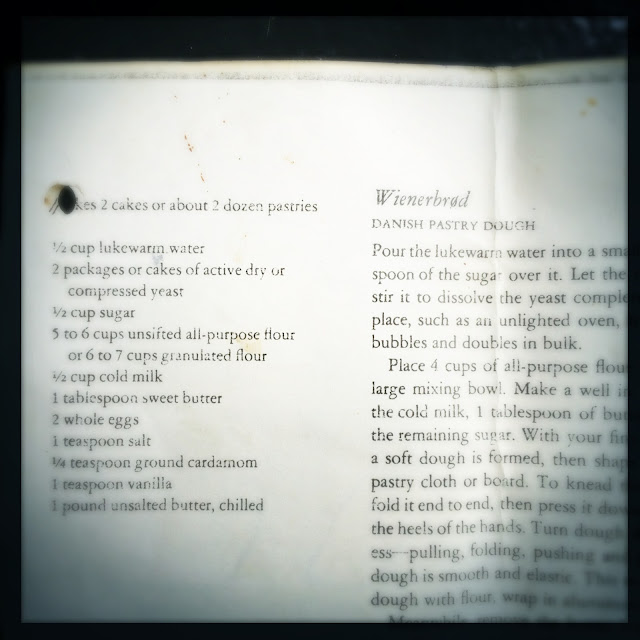 kes 2 cakes or about 2 dozen pastries
½ cup lukewarm water
2 packages or cakes of active dry or
compressed yeast
½ cup sugar
5 to 6 cups unsifted all-purpose flour
or 6 to 7 cups granulated flour
½ cup cold milk
1 tablespoon sweet butter
2 whole eggs
1 teaspoon salt
¼ teaspoon ground cardamom
1 teaspoon vanilla
1 pound unsalted butter, chilled
Wienerbrød
DANISH PASTRY DOUGH
Pour the lukewarm water into a sma
spoon of the sugar over it. Let the
stir it to dissolve the yeast comple
place, such as an unlighted oven,
bubbles and doubles in bulk.
Place 4 cups of all-purpose flou
large mixing bowl. Make a well i
the cold milk, 1 tablespoon of but
the remaining sugar. With your fin
a soft dough is formed, then shap
pastry cloth or board. To knead
fold it end to end, then press it dow
the heels of the hands. Turn dough
ess—pulling, folding, pushing an
dough is smooth and elastic. 
dough with flour, wrap in
Meanwhile remove the